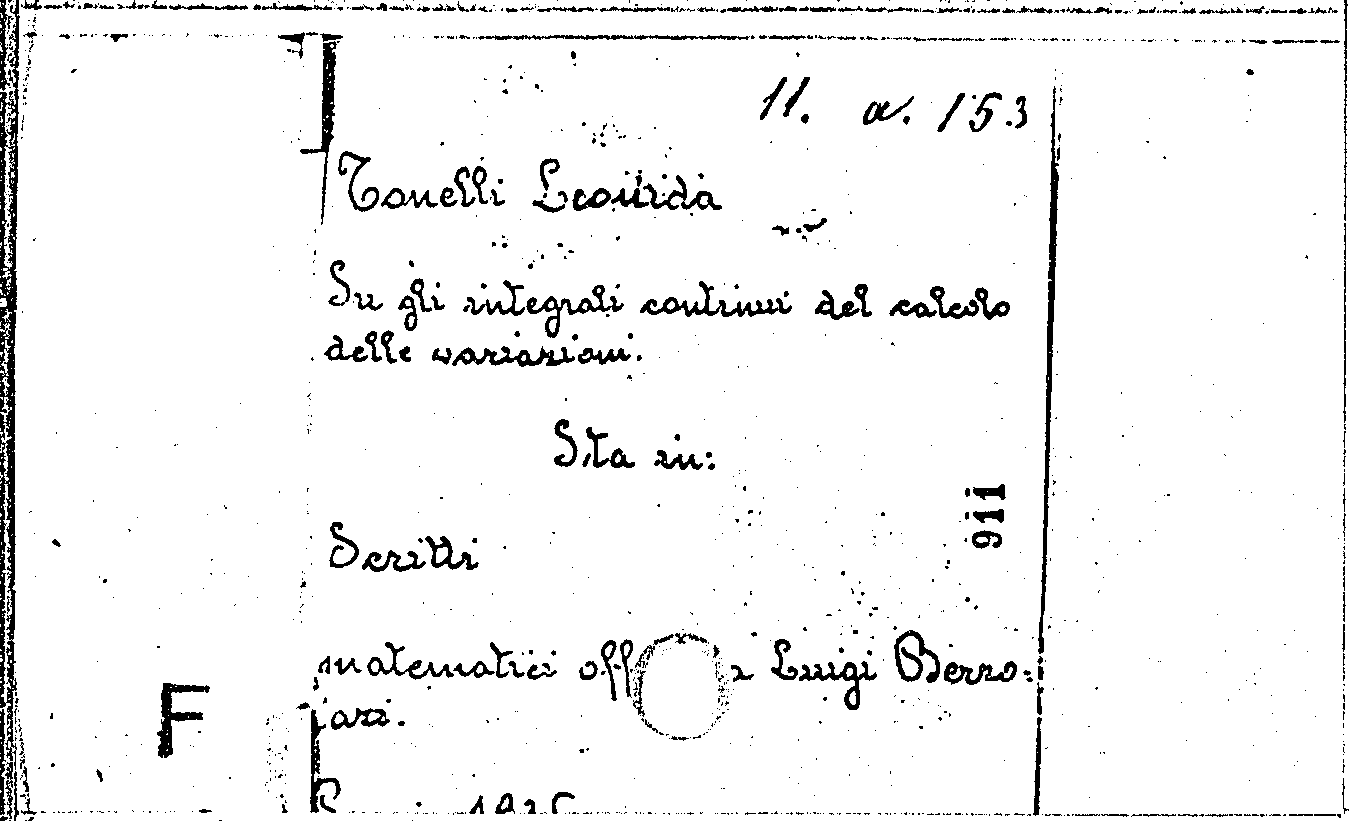 11. a. 153
Tonelli Leonida
Su gli integrali continui del calcolo
delle variazioni.
Sta in:
911
Scritti
matematici off a Luigi Berzo:
lari.
F